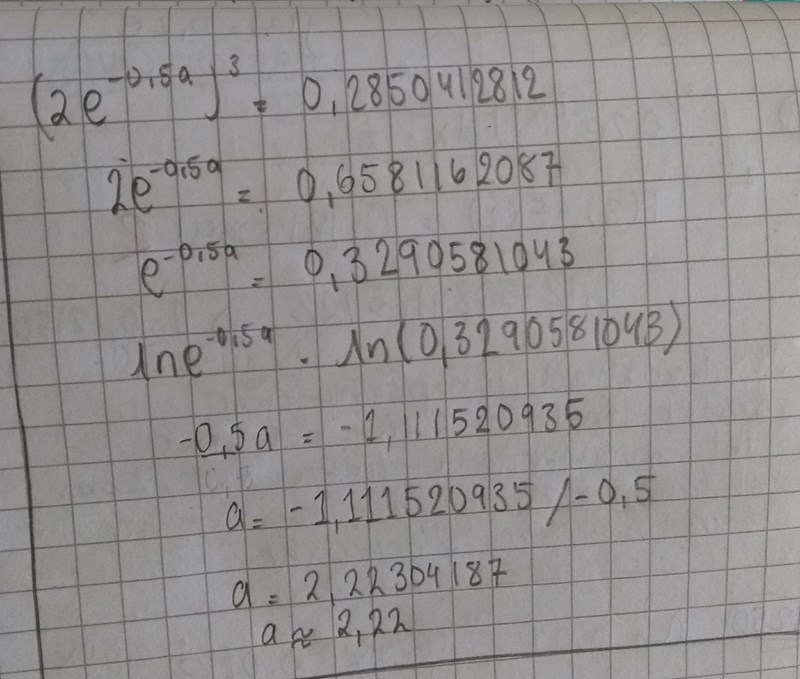 (2e^-0,5a)^3 = 0,2850412812
2e^-0,5a = 0,6581162087
e^-0,5a = 0,3290581043
lne^-0,5a = ln(0,3290581043)
-0,5a = -1,111520935
a = -1,111520935 / -0,5
a = 2,22304187
a ≈ 2,22